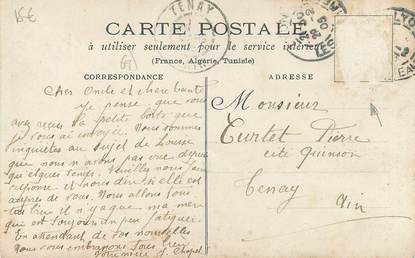 15€
TENAY
CARTE POSTALE
à utiliser seulement pour le service intérieur
(France, Algérie, Tunisie)
CORRESPONDANCE
ADRESSE
Cher Oncle et chère tante
je pense que vous
avez reçu la petite boîte que
je vous ai envoyé. Nous sommes
inquiètes au sujet de Louise
que nous n avons pas vue depuis
quelques temps. Veuillez nous faire
réponse et nous dire si elle est
auprès de vous. Nous allons tous
bien il n'y a que ma mère
qui est toujours un peu fatiguée.
En attendant de vos nouvelles
Nous vous embrassons tous bien
Votre nièce J. Chapel
Monsieur
Curtet Pierre
cité Quinson
Tenay
Ain